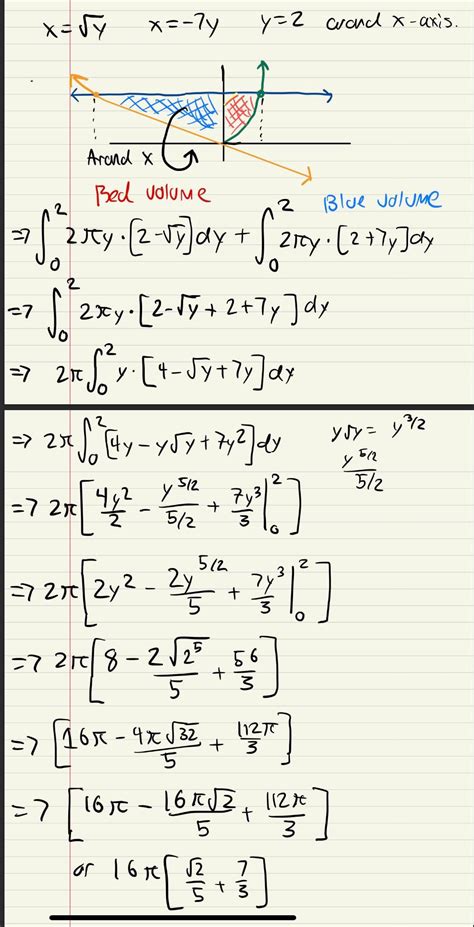 x=√y   x=-7y   y=2   around x-axis.
Around x
Red volume   Blue volume
=> ∫₀² 2πy·[2-√y]dy + ∫₀² 2πy·[2+7y]dy
=> ∫₀² 2πy·[2-√y+2+7y]dy
=> 2π∫₀² y·[4-√y+7y]dy
=> 2π∫₀² [4y-y√y+7y²]dy   y√y = y^(3/2)
y^(5/2)/(5/2)
=> 2π[4y²/2 - y^(5/2)/(5/2) + 7y³/3 |₀²]
=> 2π[2y² - 2y^(5/2)/5 + 7y³/3 |₀²]
=> 2π[8 - 2√2⁵/5 + 56/3]
=> [16π - 4π√32/5 + 112π/3]
=> [16π - 16π√2/5 + 112π/3]
or 16π[√2/5 + 7/3]